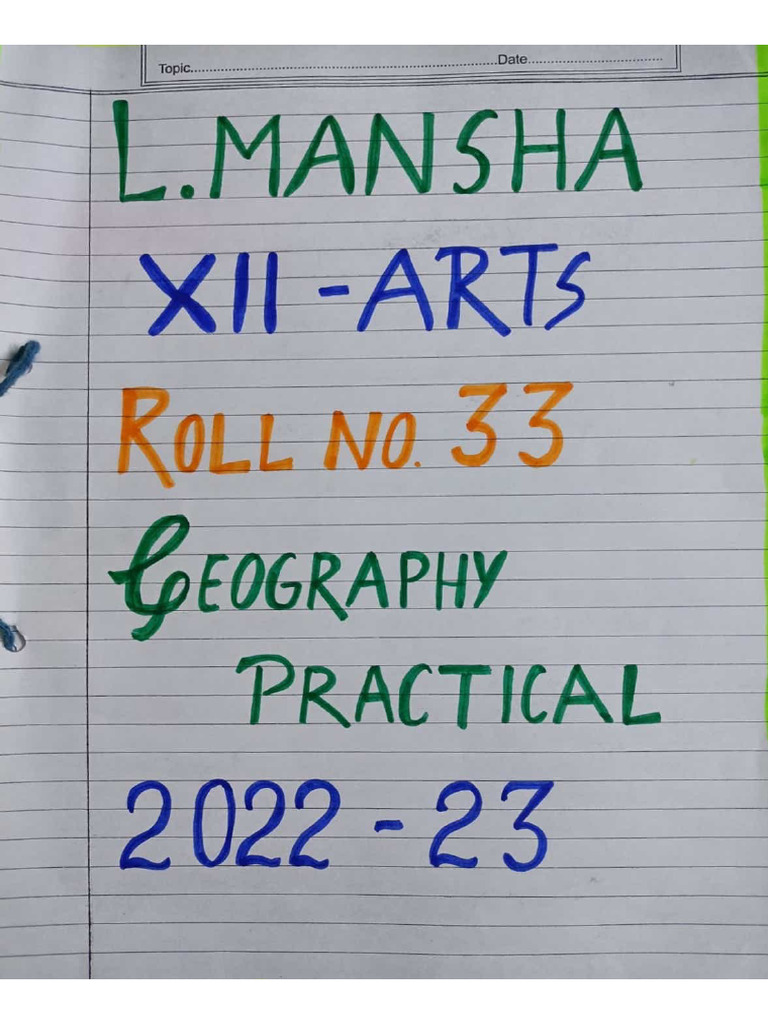 Topic........................................Date........................
L.MANSHA
XII - ARTS
ROLL NO. 33
GEOGRAPHY
PRACTICAL
2022 - 23